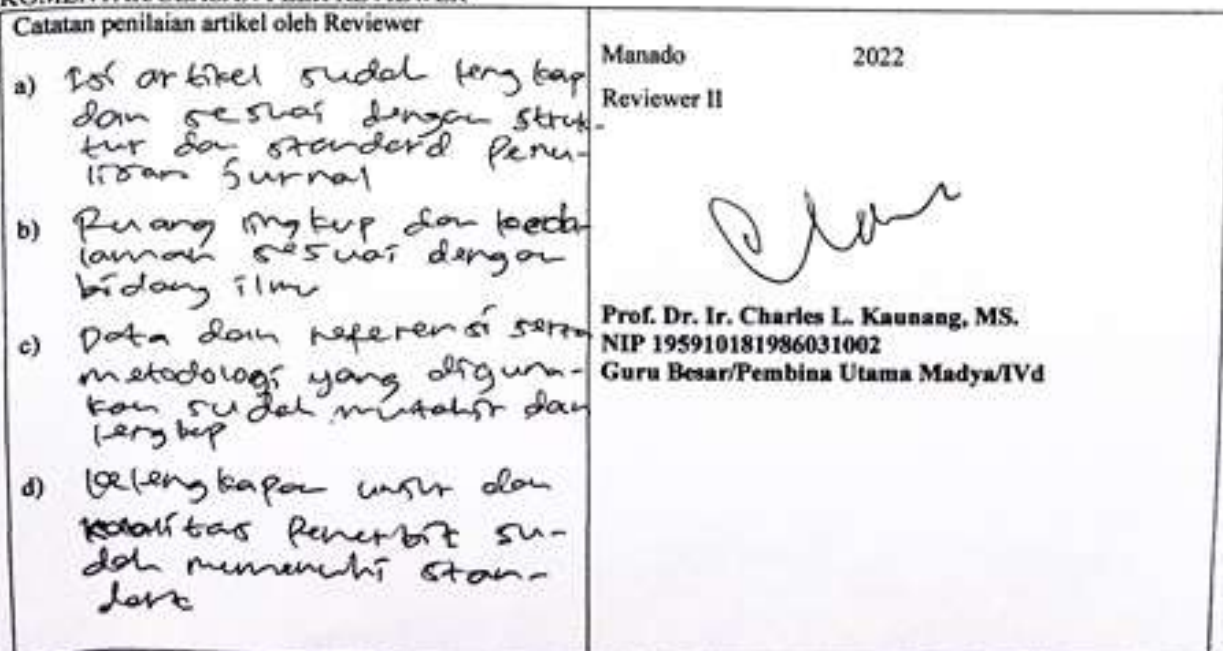 Catatan penilaian artikel oleh Reviewer
a) Isi artikel sudah lengkap
dan sesuai dengan struk-
tur dan standard Penu-
lisan Jurnal
b) Ruang lingkup dan keda
laman sesuai dengan
bidang ilmu
c) Data dan referensi serta
metodologi yang diguna-
kan sudah mutahir dan
lengkap
d) kelengkapan unsur dan
kualitas Penerbit su-
dah memenuhi stan-
dart
Manado 2022
Reviewer II
Prof. Dr. Ir. Charles L. Kaunang, MS.
NIP 195910181986031002
Guru Besar/Pembina Utama Madya/IVd